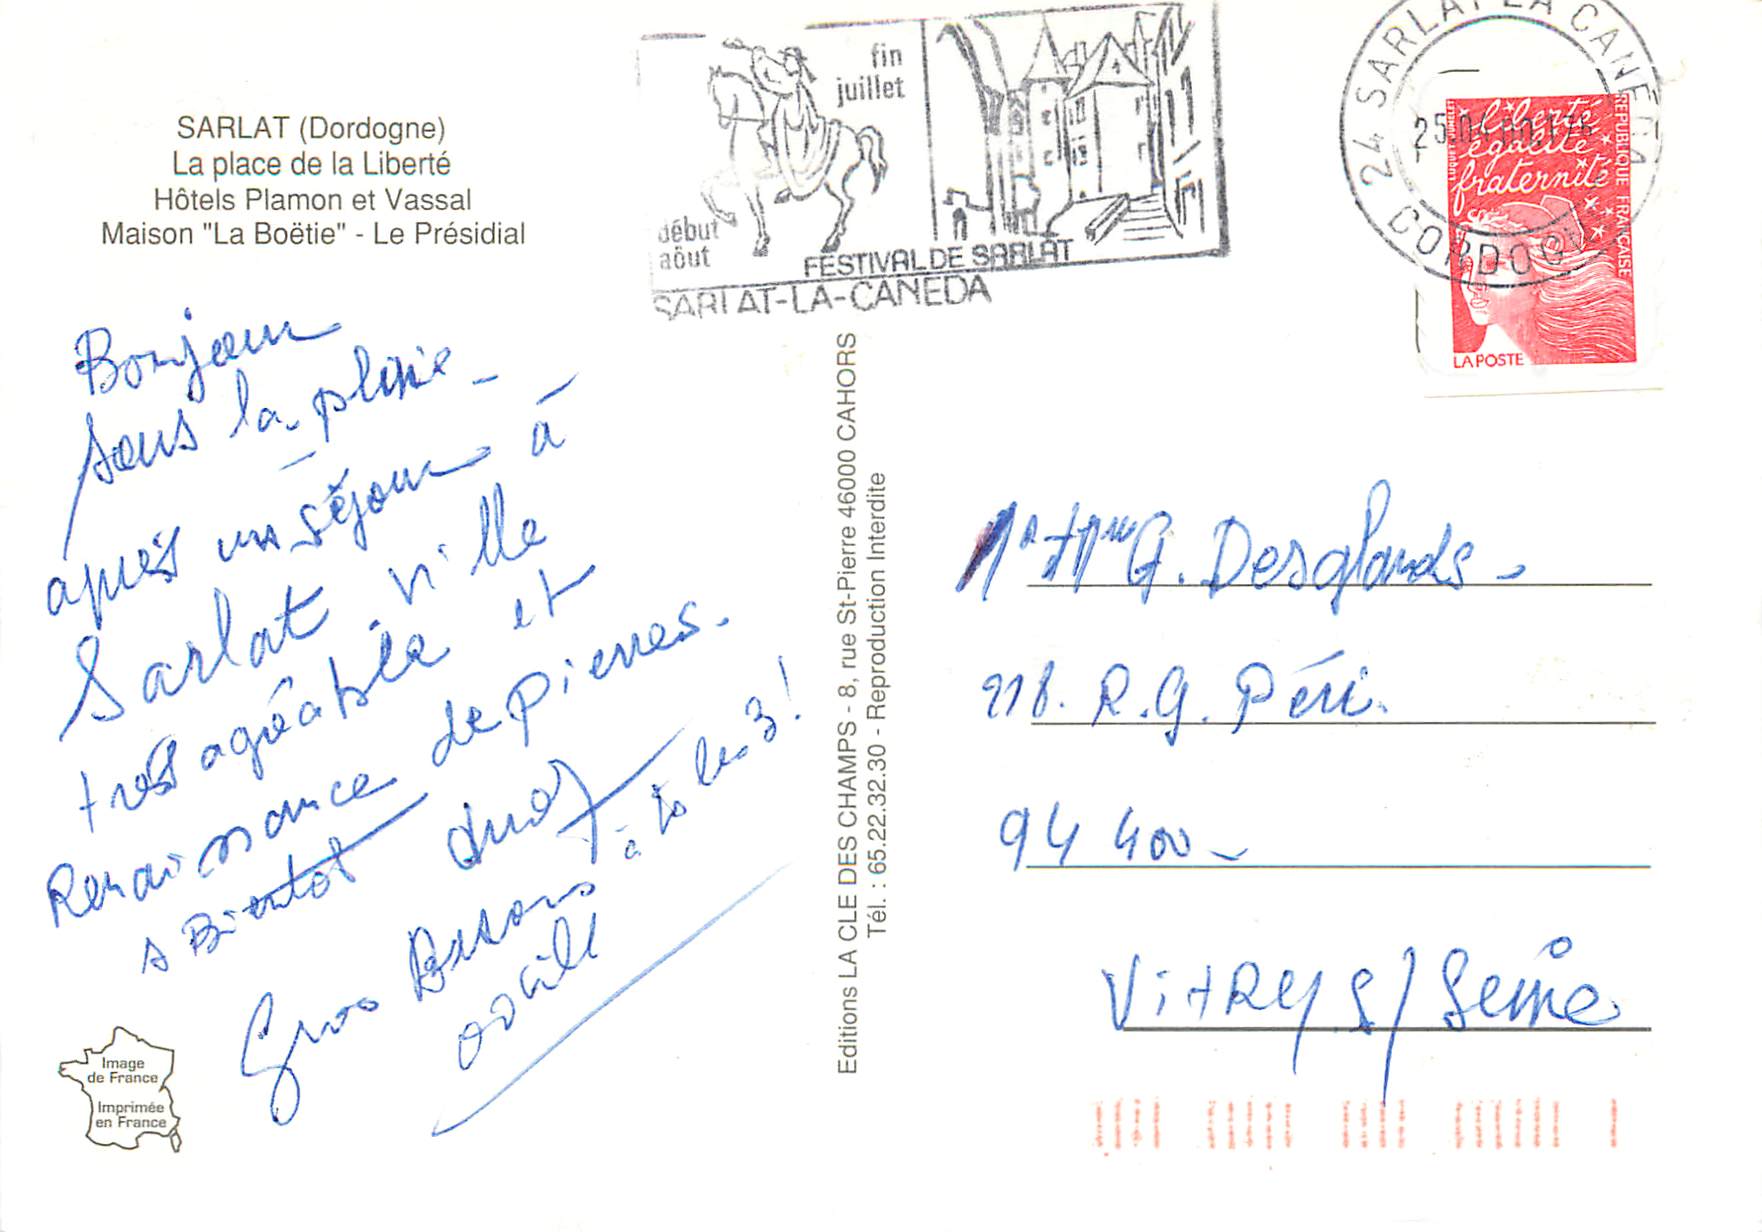 SARLAT (Dordogne)
La place de la Liberté
Hôtels Plamon et Vassal
Maison "La Boëtie" - Le Présidial
fin
juillet
début
août
FESTIVAL DE SARLAT
SARLAT-LA-CANEDA
24 SARLAT LA CANEDA
DORDOGNE
liberté
égalité
fraternité
REPUBLIQUE FRANÇAISE
LA POSTE
Bonjour
sous la pluie -
après un séjour à
Sarlat ville
très agréable et
Renaissance de pierres.
A Bientôt
Gros Baisons à to les 3!
Odile
Editions LA CLE DES CHAMPS - 8, rue St-Pierre 46000 CAHORS
Tél. : 65.22.32.30 - Reproduction Interdite
G. Desglands -
218. R. G. Péri.
94 400 -
VitRy S/Seine
Image
de France
Imprimée
en France